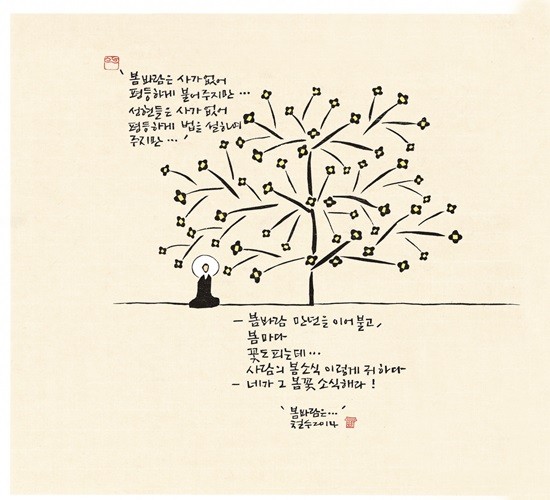 '봄바람은 사가 없어
평등하게 불어주지만 ...
성현들은 사가 없어
평등하게 법을 설하여
주지만 ... '
- 봄바람 만년을 이어 불고,
봄마다
꽃도 피는데 ...
사람의 봄소식 이렇게 귀하다
- 네가 그 봄꽃 소식해라 !
'봄바람은 ... '
철수 2014